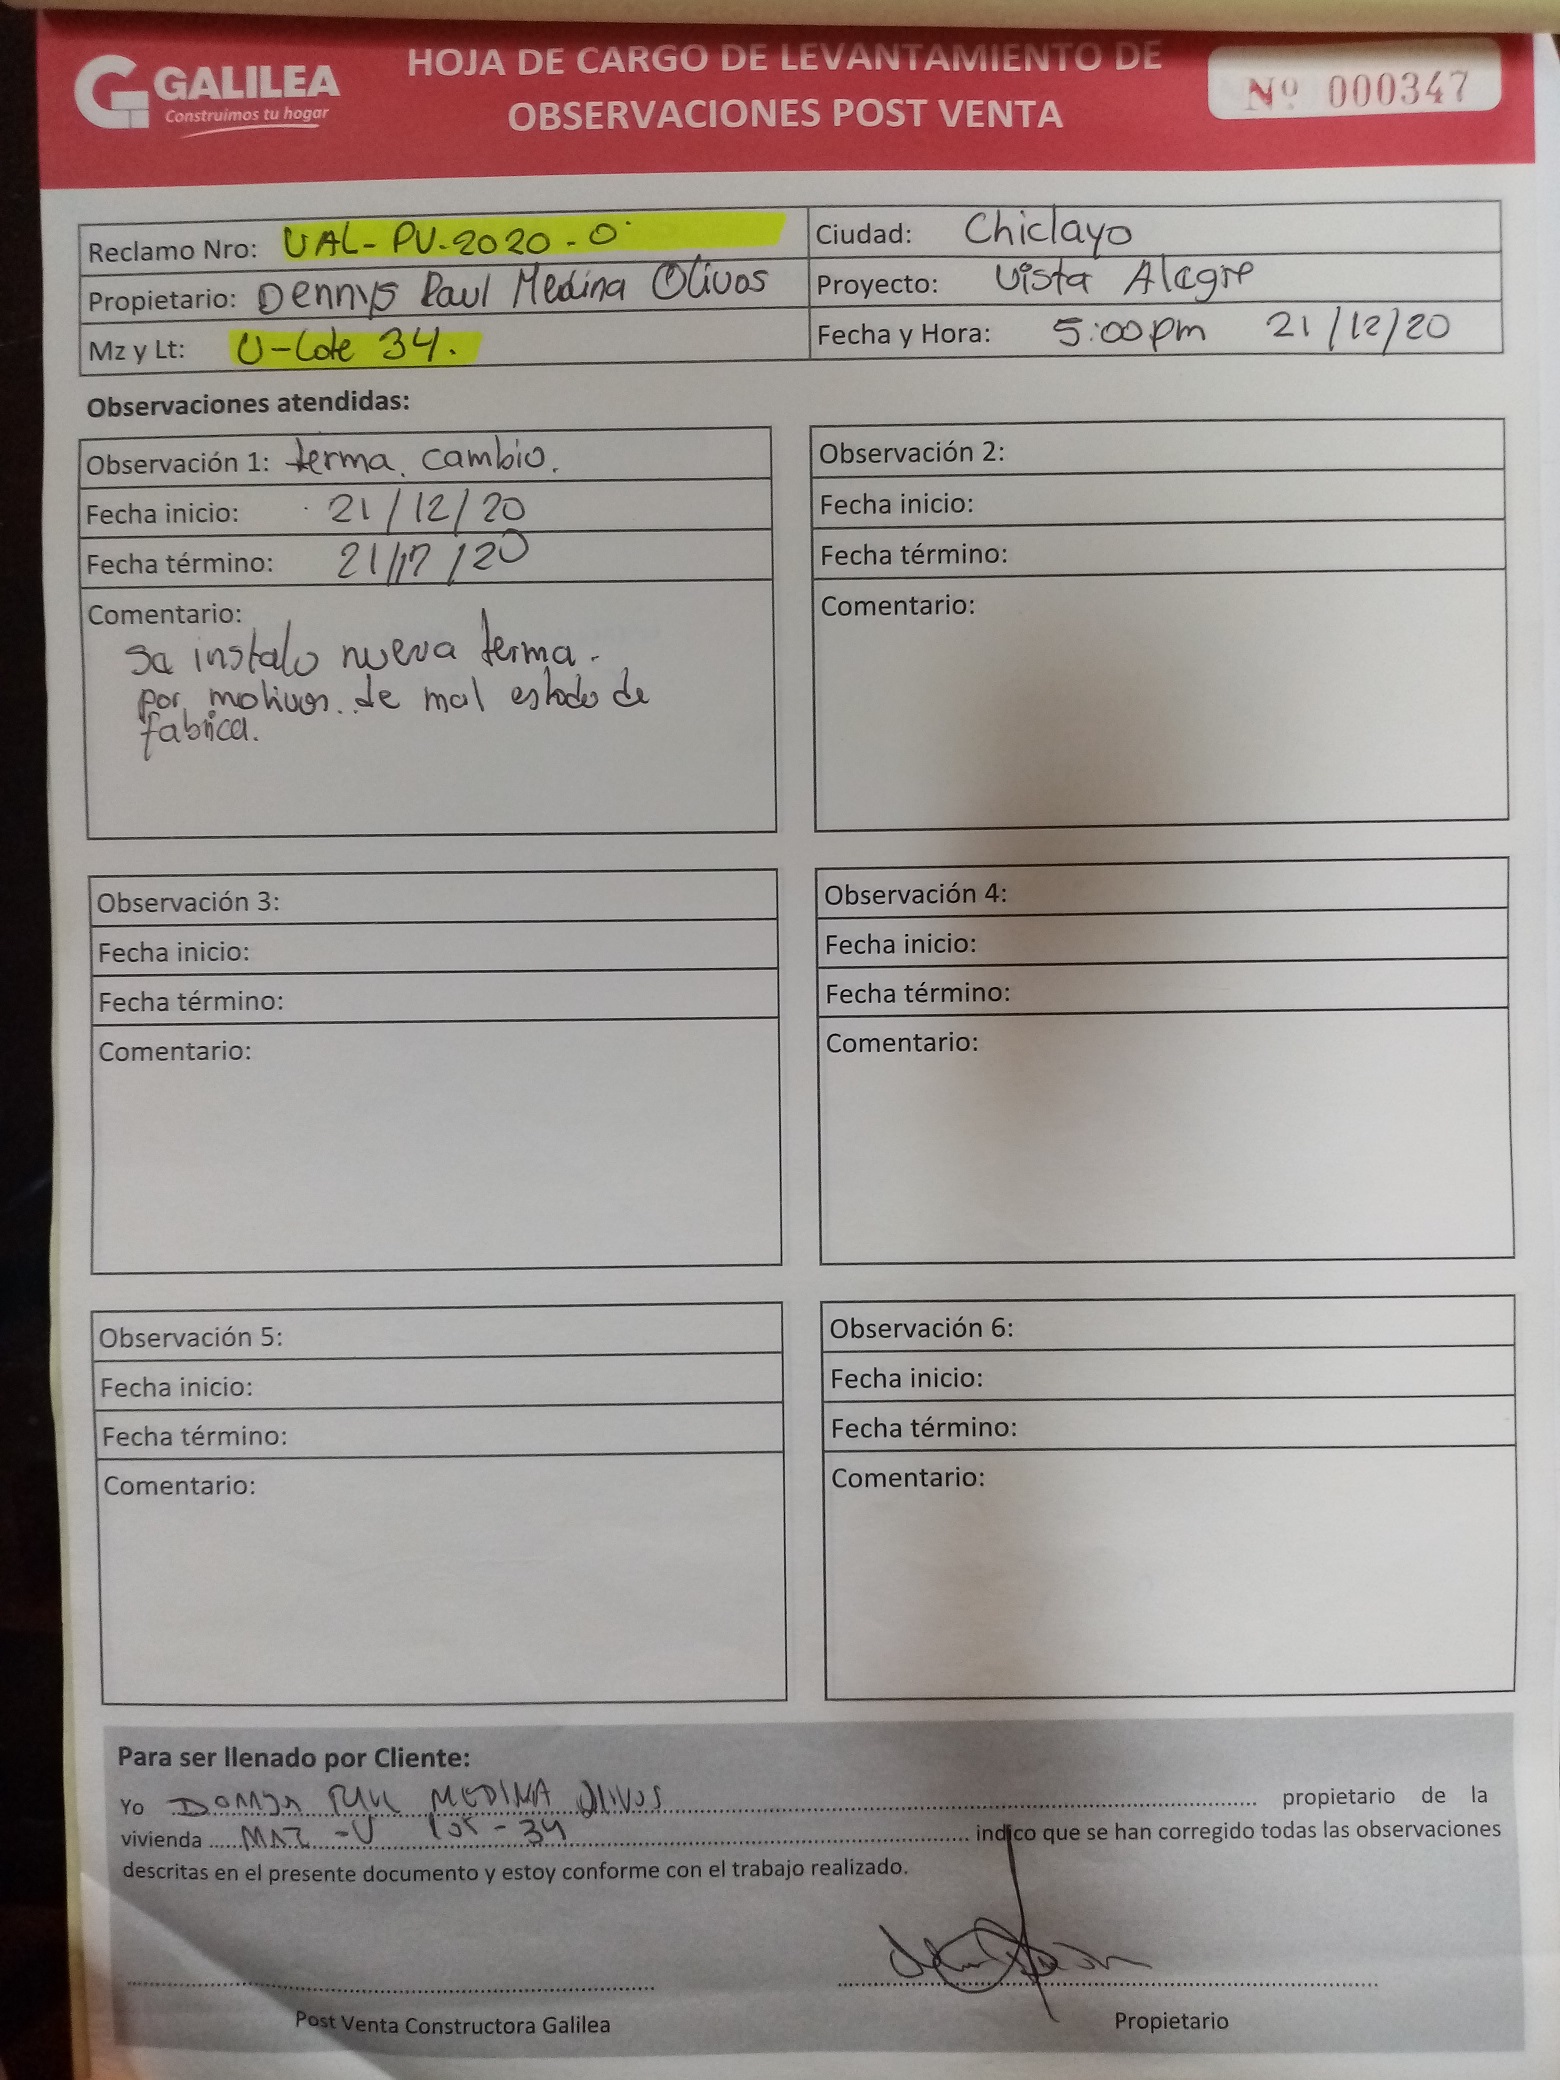 GALILEA
Construimos tu hogar
HOJA DE CARGO DE LEVANTAMIENTO DE
OBSERVACIONES POST VENTA
Nº 000347
Reclamo Nro: UAL-PV-2020-0
Ciudad: Chiclayo
Propietario: Dennys Paul Medina Olivos
Proyecto: Vista Alegre
Mz y Lt: U-Lote 34.
Fecha y Hora: 5:00pm 21/12/20
Observaciones atendidas:
Observación 1: terma. cambio.
Fecha inicio: 21/12/20
Fecha término: 21/12/20
Comentario:
Se instalo nueva terma.
por motivos. de mal estado de
fabrica.
Observación 2:
Fecha inicio:
Fecha término:
Comentario:
Observación 3:
Fecha inicio:
Fecha término:
Comentario:
Observación 4:
Fecha inicio:
Fecha término:
Comentario:
Observación 5:
Fecha inicio:
Fecha término:
Comentario:
Observación 6:
Fecha inicio:
Fecha término:
Comentario:
Para ser llenado por Cliente:
Yo MEDINA OLIVOS propietario de la
vivienda MAZ-U 34 indico que se han corregido todas las observaciones
descritas en el presente documento y estoy conforme con el trabajo realizado.
Post Venta Constructora Galilea
Propietario